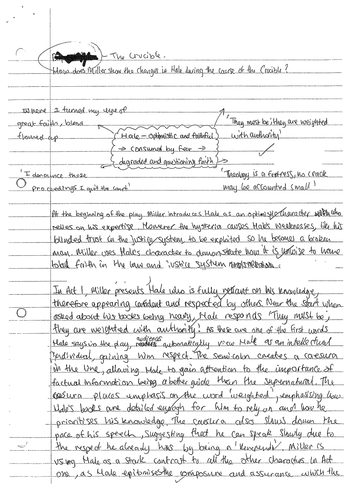 - The Crucible.
How does Miller show the changes in Hale during the course of the Crucible?
Where I turned my eye of
great faith, blood
flowed up
Hale - optimistic and faithful
→ consumed by fear →
degraded and questioning faith
'They must be; they are weighted
with authority'
'I denounce these
proceedings I quit the court'
'Theology is a fortress, no crack
may be accounted small'
At the beginning of the play, Miller introduces Hale as an optimistic character who
relies on his expertise. However the hysteria causes Hale's weaknesses, like his
blinded trust in the justice system to be exploited so he becomes a broken
man. Miller uses Hale's character to demonstrate how it is unwise to have
total faith in the law and justice system
In Act 1, Miller presents Hale who is fully reliant on his knowledge,
therefore appearing confident and respected by others. Near the start when
asked about his books being heavy, Hale responds 'They must be;
they are weighted with authority'. As these are one of the first words
Hale says in the play, audiences automatically view Hale as an intellectual
individual, gaining him respect. The semicolon creates a caesura
in the line, allowing Hale to gain attention to the importance of
factual information being a better guide than the supernatural. The
caesura places emphasis on the word 'weighted', emphasising how
Hale's books are detailed enough for him to rely on and how he
prioritises his knowledge. The caesura also slows down the
pace of his speech, suggesting that he can speak slowly due to
the respect he already has by being a 'Reverend'. Miller is
using Hale as a stark contrast to all the other characters in Act
one, as Hale epitomises the composure and assurance which the